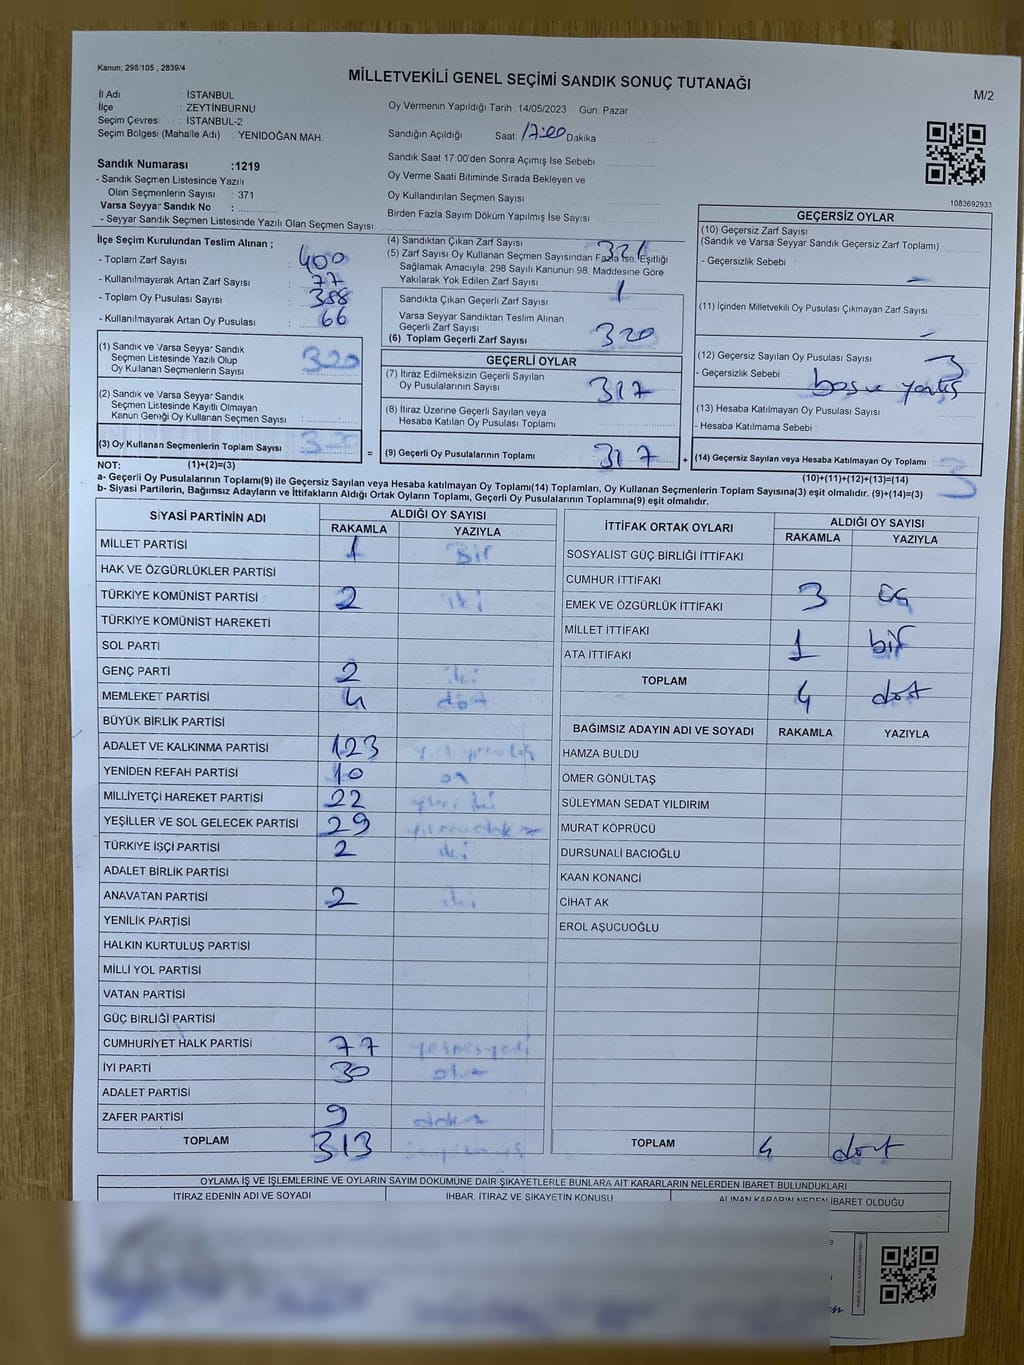 Kanun; 298/105 , 2839/4
MİLLETVEKİLİ GENEL SEÇİMİ SANDIK SONUÇ TUTANAĞI
M/2
İl Adı : İSTANBUL
İlçe : ZEYTİNBURNU
Seçim Çevres : İSTANBUL-2
Seçim Bölgesi (Mahalle Adı) : YENİDOĞAN MAH.
Sandık Numarası :1219
- Sandık Seçmen Listesinde Yazılı
Olan Seçmenlerin Sayısı : 371
Varsa Seyyar Sandık No :
- Seyyar Sandık Seçmen Listesinde Yazılı Olan Seçmen Sayısı:
Oy Vermenin Yapıldığı Tarih 14/05/2023 Gün Pazar
Sandığın Açıldığı Saat 17:00 Dakika
Sandık Saat 17:00'den Sonra Açımış İse Sebebi
Oy Verme Saati Bitiminde Sırada Bekleyen ve
Oy Kullandırılan Seçmen Sayısı
Birden Fazla Sayım Döküm Yapılmış İse Sayısı
1083692933
İlçe Seçim Kurulundan Teslim Alınan ;
- Toplam Zarf Sayısı : 400
- Kullanılmayarak Artan Zarf Sayısı : 77
- Toplam Oy Pusulası Sayısı : 388
- Kullanılmayarak Artan Oy Pusulası : 66
(1) Sandık ve Varsa Seyyar Sandık
Seçmen Listesinde Yazılı Olup
Oy Kullanan Seçmenlerin Sayısı : 320
(2) Sandık ve Varsa Seyyar Sandık
Seçmen Listesinde Kayıtlı Olmayan
Kanun Gereği Oy Kullanan Seçmen Sayısı :
(3) Oy Kullanan Seçmenlerin Toplam Sayısı :
(4) Sandıktan Çıkan Zarf Sayısı : 321
(5) Zarf Sayısı Oy Kullanan Seçmen Sayısından Fazla İse, Eşitliği
Sağlamak Amacıyla; 298 Sayılı Kanunun 98. Maddesine Göre
Yakılarak Yok Edilen Zarf Sayısı : 1
Sandıkta Çıkan Geçerli Zarf Sayısı
Varsa Seyyar Sandıktan Teslim Alınan
Geçerli Zarf Sayısı
(6) Toplam Geçerli Zarf Sayısı 320
GEÇERLİ OYLAR
(7) İtiraz Edilmeksizin Geçerli Sayılan
Oy Pusulalarının Sayısı 317
(8) İtiraz Üzerine Geçerli Sayılan veya
Hesaba Katılan Oy Pusulası Toplamı
= (9) Geçerli Oy Pusulalarının Toplamı 317
GEÇERSİZ OYLAR
(10) Geçersiz Zarf Sayısı
(Sandık ve Varsa Seyyar Sandık Geçersiz Zarf Toplamı)
- Geçersizlik Sebebi : -
(11) İçinden Milletvekili Oy Pusulası Çıkmayan Zarf Sayısı : -
(12) Geçersiz Sayılan Oy Pusulası Sayısı : 3
- Geçersizlik Sebebi :
(13) Hesaba Katılmayan Oy Pusulası Sayısı :
- Hesaba Katılmama Sebebi :
+ (14) Geçersiz Sayılan veya Hesaba Katılmayan Oy Toplamı : 3
NOT: (1)+(2)=(3)
(10)+(11)+(12)+(13)=(14)
a- Geçerli Oy Pusulasının Toplamı(9) ile Geçersiz Sayılan veya Hesaba Katılmayan oy Toplamı(14) Toplamları, Oy Kullanan Seçmenlerin Toplam Sayısına(3) eşit olmalıdır. (9)+(14)=(3)
b- Siyasi Partilerin, Bağımsız Adayların ve İttifakların Aldığı Ortak Oyların Toplamı, Geçerli Oy Pusulalarının Toplamına(9) eşit olmalıdır.
SİYASİ PARTİNİN ADI ALDIĞI OY SAYISI
RAKAMLA YAZIYLA
MİLLET PARTİSİ 1 Bir
HAK VE ÖZGÜRLÜKLER PARTİSİ
TÜRKİYE KOMÜNİST PARTİSİ 2 iki
TÜRKİYE KOMÜNİST HAREKETİ
SOL PARTİ
GENÇ PARTİ 2 iki
MEMLEKET PARTİSİ 4 dört
BÜYÜK BİRLİK PARTİSİ
ADALET VE KALKINMA PARTİSİ 123
YENİDEN REFAH PARTİSİ 10 on
MİLLİYETÇİ HAREKET PARTİSİ 22
YEŞİLLER VE SOL GELECEK PARTİSİ 29
TÜRKİYE İŞÇİ PARTİSİ 2 iki
ADALET BİRLİK PARTİSİ
ANAVATAN PARTİSİ 2 iki
YENİLİK PARTİSİ
HALKIN KURTULUŞ PARTİSİ
MİLLİ YOL PARTİSİ
VATAN PARTİSİ
GÜÇ BİRLİĞİ PARTİSİ
CUMHURİYET HALK PARTİSİ 77
İYİ PARTİ 30
ADALET PARTİSİ
ZAFER PARTİSİ 9
TOPLAM 313
İTTİFAK ORTAK OYLARI ALDIĞI OY SAYISI
RAKAMLA YAZIYLA
SOSYALİST GÜÇ BİRLİĞİ İTTİFAKI
CUMHUR İTTİFAKI
EMEK VE ÖZGÜRLÜK İTTİFAKI 3
MİLLET İTTİFAKI
ATA İTTİFAKI 1 bir
TOPLAM 4 dört
BAĞIMSIZ ADAYIN ADI VE SOYADI RAKAMLA YAZIYLA
HAMZA BULDU
ÖMER GÖNÜLTAŞ
SÜLEYMAN SEDAT YILDIRIM
MURAT KÖPRÜCÜ
DURSUNALİ BACIOĞLU
KAAN KONANCİ
CİHAT AK
EROL AŞUCUOĞLU
TOPLAM 4 dört
OYLAMA İŞ VE İŞLEMLERİNE VE OYLARIN SAYIM DÖKÜMÜNE DAİR ŞİKAYETLERLE BUNLARA AİT KARARLARIN NELERDEN İBARET BULUNDUKLARI
İTİRAZ EDENİN ADI VE SOYADI İHBAR, İTİRAZ VE ŞİKAYETİN KONUSU ALINAN KARARIN NEDEN İBARET OLDUĞU